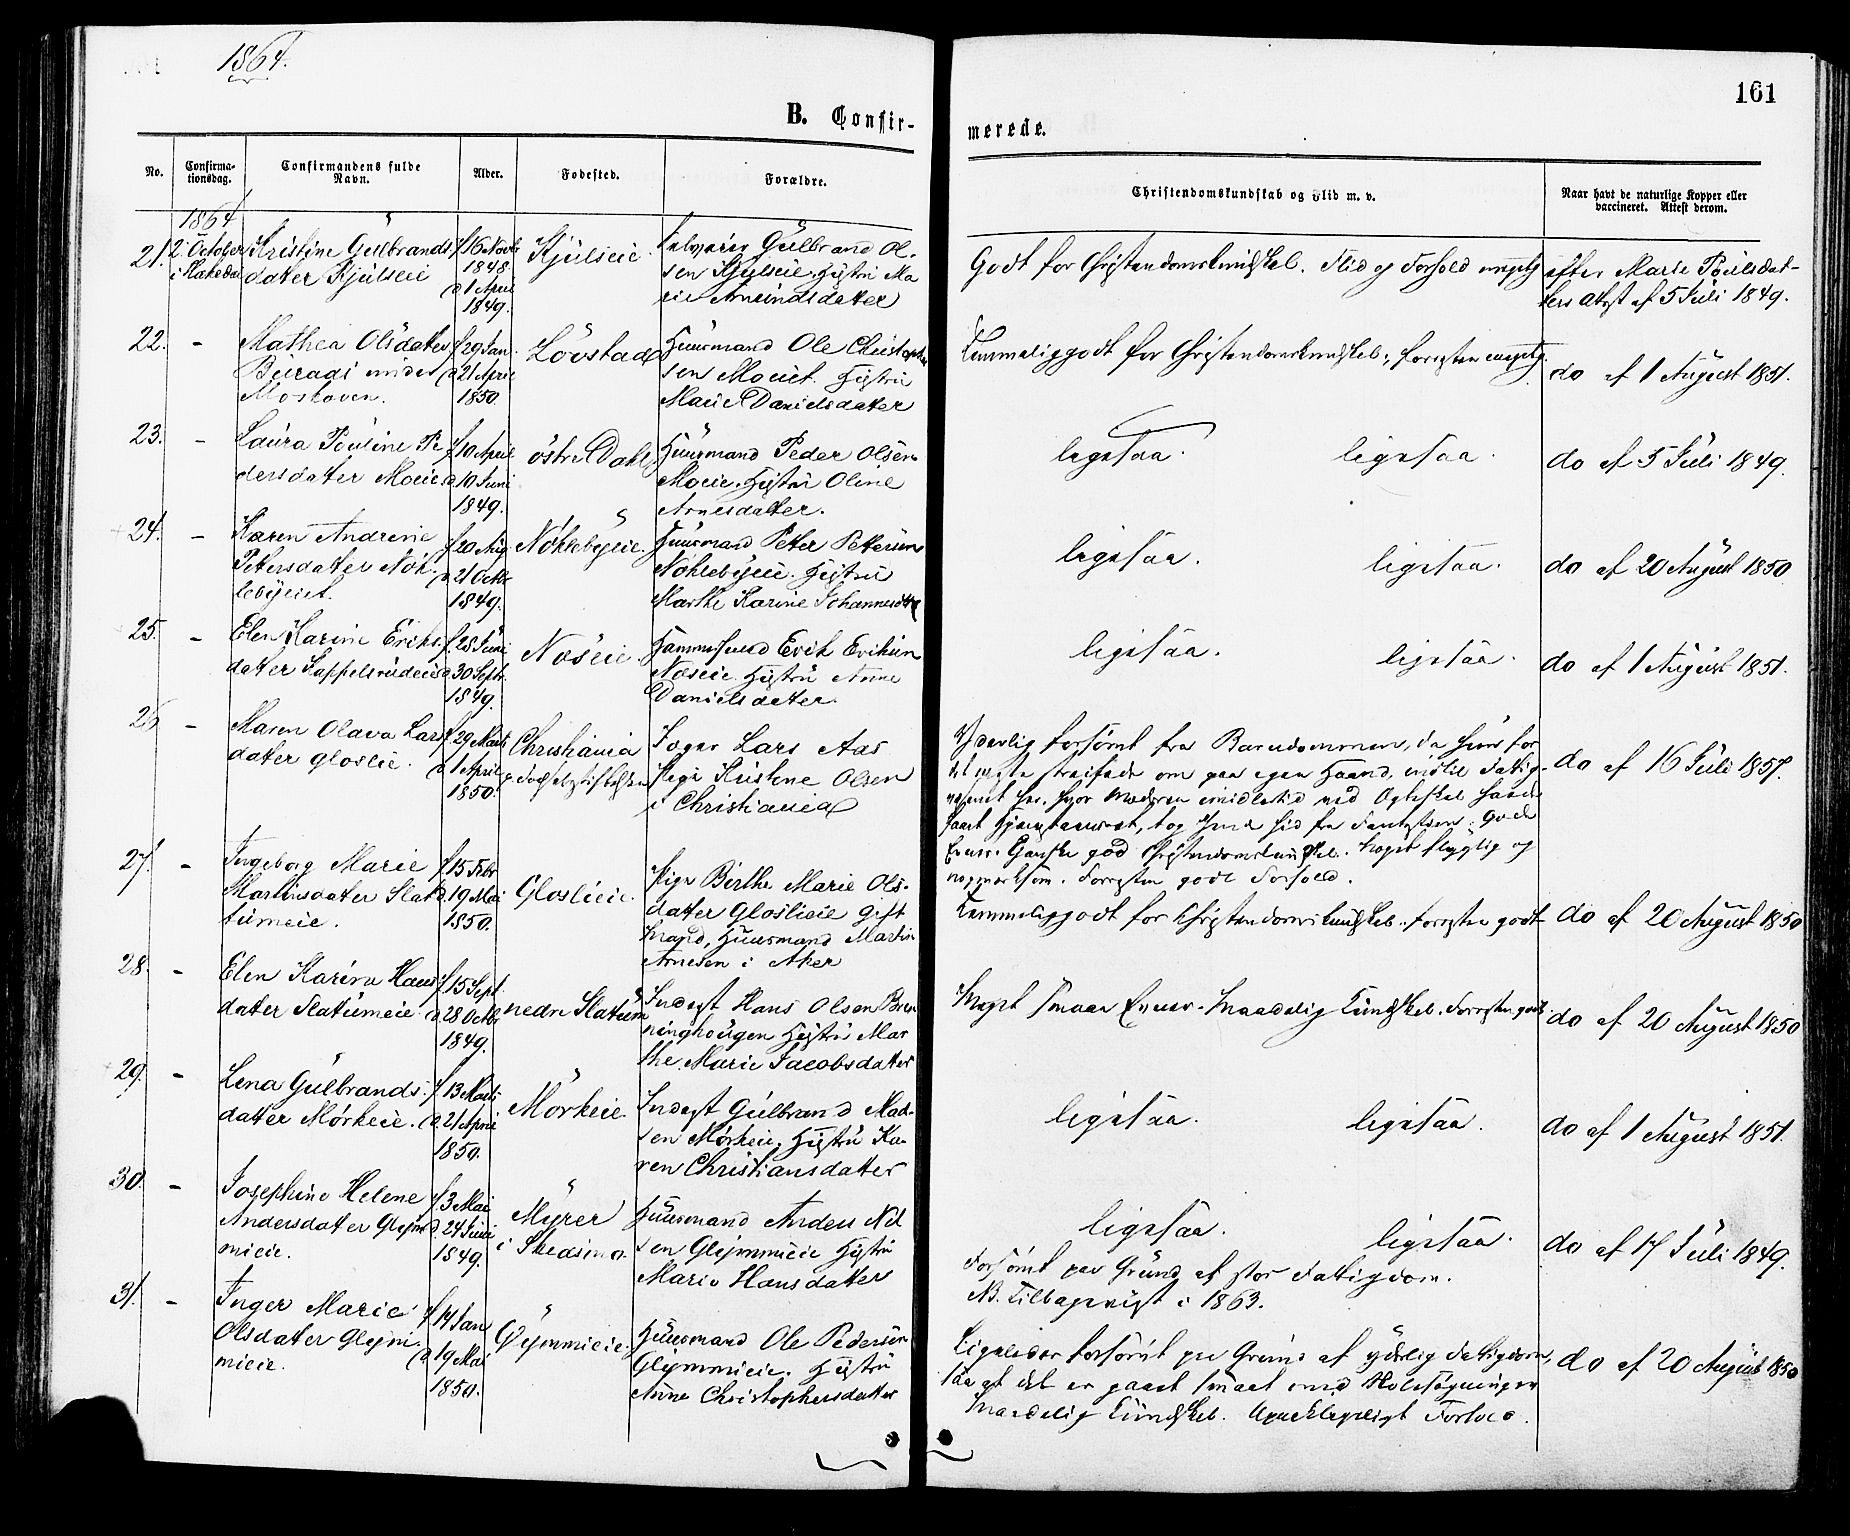 1864.
161
B. Confir-
merede.
No.
Confirma-
tionsdag.
Confirmandens fulde
Navn.
Alder.
Fodested.
Forældre.
Christendomskundskab og Flid m. v.
Naar havt de naturlige Kopper eller
vaccineret. Attest derom.
1864
21. 2. October
i Hakedal
Kristine Gulbrands
datter Kjulseie
f. 16 Novbr
1848
d. 1 April
1849.
Kjulseie
Gulbrand Ol-
sen Kjulseie. Hustru Ma
rie Amundsdatter
Godt for Christendomskundskab. Flid og Forhold
efter Marie Poulsdat-
ters Attest af 5 Juli 1849.
22. -
Mathea Olsdatter
under
Moskoven.
f. 29 Jan.
d. 21 April
1850.
Lövstad
Huusmand Ole Christopher
sen Moeiet. Hustru
Marie Danielsdatter
Temmelig godt for Christendomskundskab; forresten
do af 1 August 1851.
23. -
Laura Pouline Pe
dersdatter Moeie
f. 10 April
d. 10 Juni
1849.
östre Dahl
Huusmand Peder Olsen
Moeie. Hustru Oline
Arnesdatter.
ligesaa. ligesaa.
do af 5 Juli 1849.
24. -
Karen Andrine
Petersdatter Nök-
lebyeiet.
f. 20 Aug
d. 21 Octbr
1849.
Nöklebyeie.
Huusmand Peter Pettersen
Nöklebyeie. Hustru
Marthe Karine Johannesdtr
ligesaa. ligesaa.
do af 20 August 1850
25. -
Elen Karine Eriks
datter Tappelsrudeie
f. 28 Juni
d. 30 Septr.
1849.
Næseie.
Erik Eriksen
Næseie. Hustru Anne
Danielsdatter.
ligesaa. ligesaa.
do af 1 August 1851.
26 -
Maren Olava Lars
datter Gloslie.
f. 29 Marts
d. 1 April
1850.
Christiania
Lars Aas
Pige Kristine Olsen
i Christiania
Yderlig forsömt fra Barndommen, da hun for
det meste om paa egen Haand, indtil Fattig-
hvor Moderen imidlertid ved
tog hende hid fra
Evner. Ganske god Christendomskundskab. Noget flygtig og
uopmærksom. Forresten godt Forhold.
do af 16 Juli 1857.
27. -
Ingeborg Marie
Martinsdatter Slat
tumeie.
f. 15 Febr
d. 19 Mai
1850.
Gloslieie.
Pige Birthe Marie Ols-
datter Gloslieie gift
Huusmand Martin
Arnesen i Aker
Temmelig godt for Christendomskundskab. forresten godt
do af 20 August 1850
28. -
Elen Karine Hans
datter Slattumeie
f. 15 Sept.
d. 28 Octbr
1849.
nedre Slattum
Inderst Hans Olsen Bren
ninghougen Hustru Mar
the Marie Jacobsdatter
Meget smaae Evner. Maadelig Kundskab. Forresten godt
do af 20 August 1850
29. -
Lena Gulbrands-
datter Mörkeie.
f. 13 Marts
d. 21 April
1850.
Mörkeie.
Inderst Gulbrand Mad-
sen Mörkeie, Hustru Ka-
ren Christiansdatter
ligesaa. ligesaa.
do af 1 August 1851.
30. -
Josephine Helene
Andersdatter Glym
mieie.
f. 3 Mai
d. 24 Juni
1849.
Myrer
i Skedsmo.
Huusmand Anders Nil
sen Glymmieie Hustru
Marie Hansdatter
ligesaa. ligesaa.
Forsömt paa Grund af stor Fattigdom.
NB. Tilbagevist i 1863.
do af 17 Juli 1849.
31. -
Inger Marie
Olsdatter Glym-
mieie.
f. 14 Jan
d. 19 Mai
1850.
Glymmieie.
Huusmand Ole Pedersen
Glymmieie. Hustru
Anne Christophersdatter
Ligeledes forsömt paa Grund af yderlig Fattigdom,
saa at det er gaaet smaat med Skolesögningen
Maadelig Kundskab. Upaaklageligt Forhold.
do af 20 August 1850